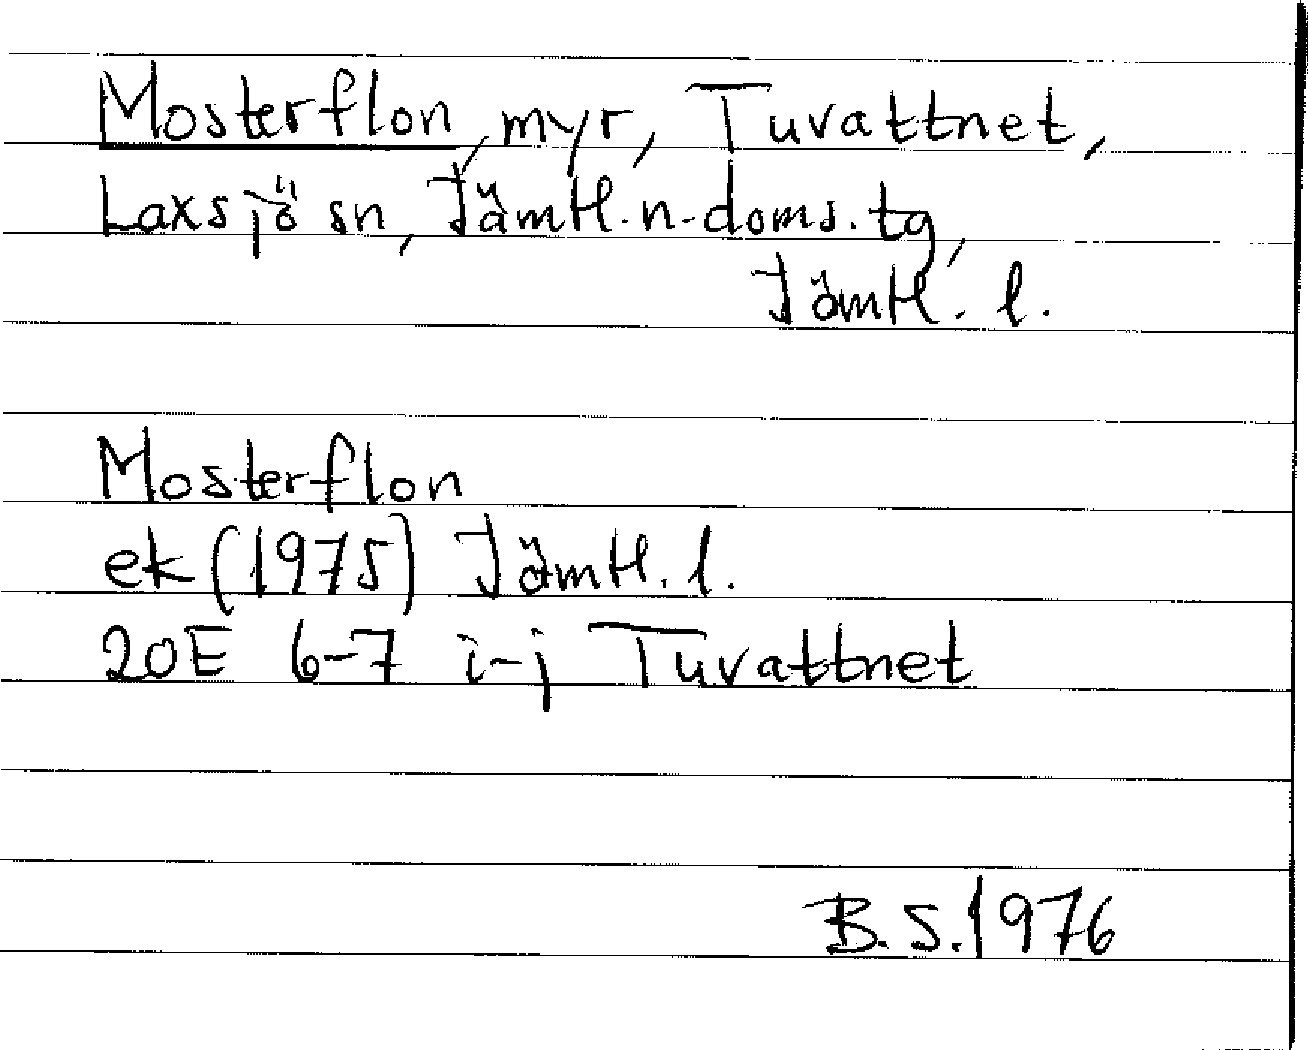 Mosterflon, myr, Tuvattnet,
Laxsjö sn, Jämtl. n. doms. tg,
Jämtl. l.
Mosterflon
ek (1975) Jämtl. l.
20E 6-7 i-j Tuvattnet
B.S. 1976